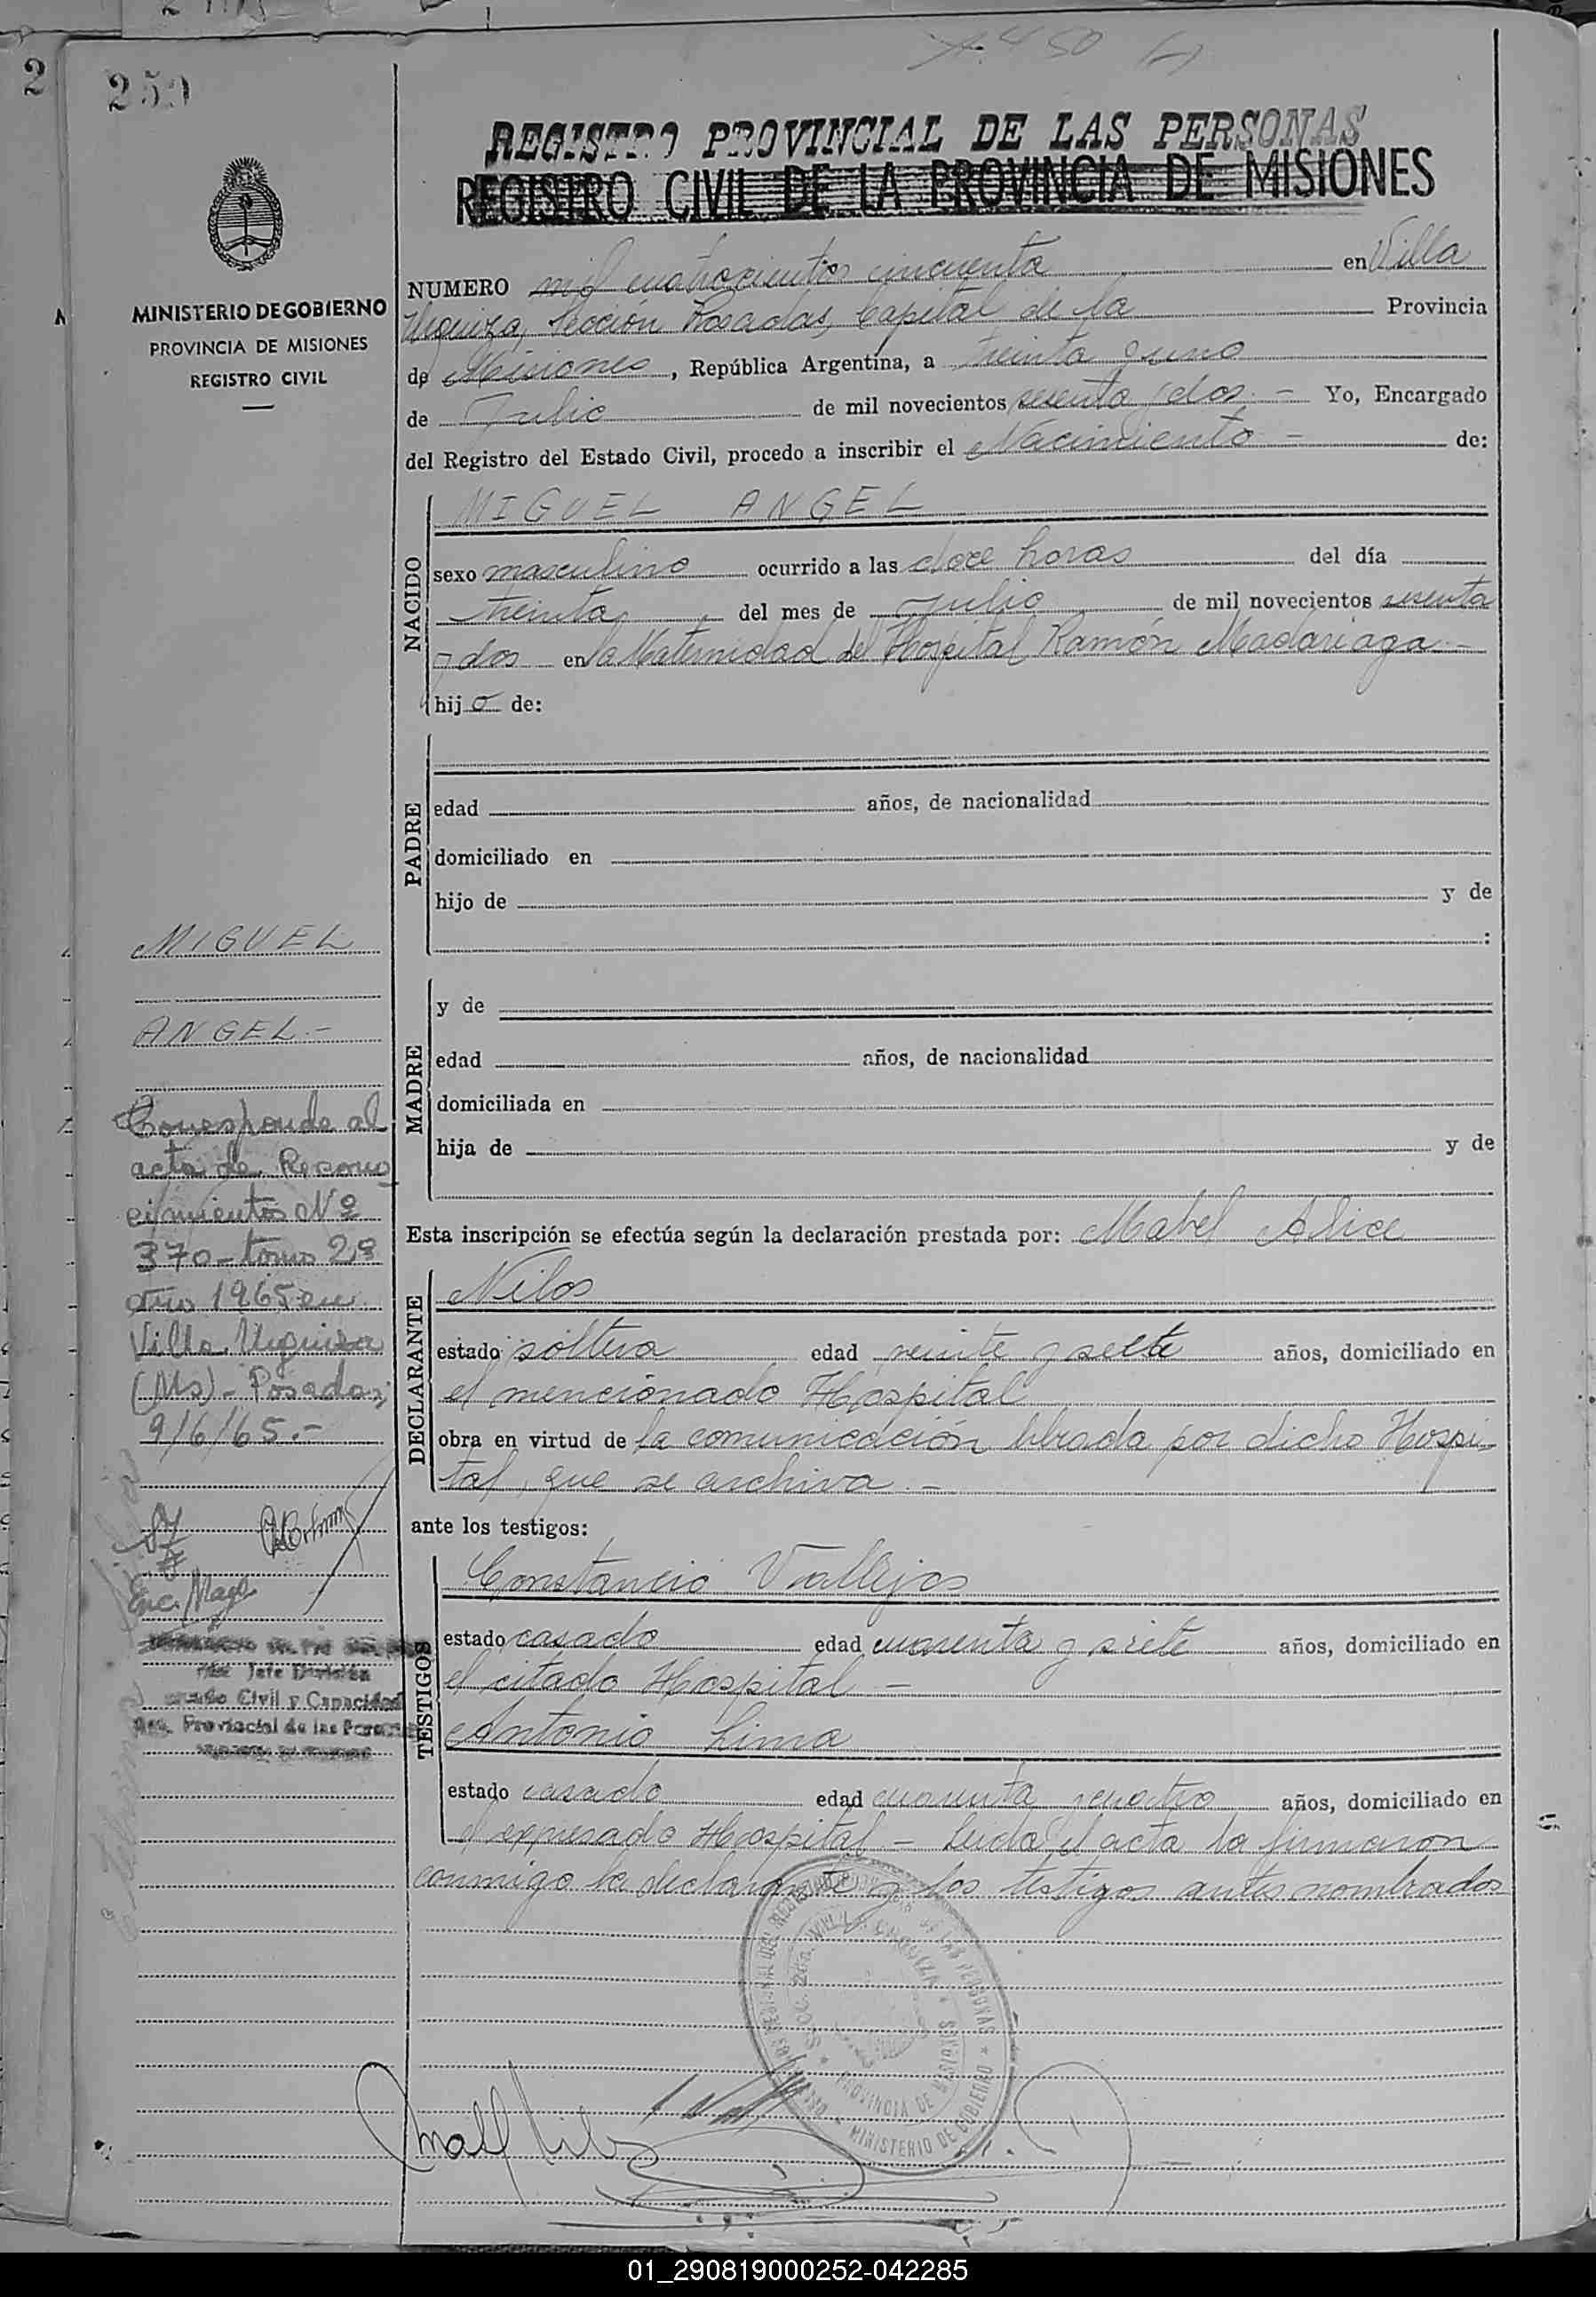 2
250
REGISTRO PROVINCIAL DE LAS PERSONAS
REGISTRO CIVIL DE LA PROVINCIA DE MISIONES
MINISTERIO DE GOBIERNO
PROVINCIA DE MISIONES
REGISTRO CIVIL
NUMERO mil cuatrocientos cincuenta en Villa
Urquiza, Sección Posadas, Capital de la Provincia
de Misiones, República Argentina, a treinta y uno
de Julio de mil novecientos sesenta y dos.- Yo, Encargado
del Registro del Estado Civil, procedo a inscribir el Nacimiento - de:
NACIDO
MIGUEL ANGEL
sexo masculino ocurrido a las doce horas del día
treinta del mes de Julio de mil novecientos sesenta
y dos en la Maternidad del Hospital Ramón Madariaga -
hijo de:
PADRE
edad años, de nacionalidad
domiciliado en
hijo de y de
:
MADRE
y de
edad años, de nacionalidad
domiciliada en
hija de y de
Esta inscripción se efectúa según la declaración prestada por: Mabel Alice
DECLARANTE
Nilos
estado soltera edad veinte y siete años, domiciliado en
el mencionado Hospital
obra en virtud de la comunicación librada por dicho Hospi-
tal, que se archiva.-
ante los testigos:
TESTIGOS
Constancio Vallejos
estado casado edad cuarenta y siete años, domiciliado en
el citado Hospital -
Antonio Lima
estado casado edad cuarenta y cuatro años, domiciliado en
el expresado Hospital - Leida el acta la firmaron
conmigo la declarante y los testigos antes nombrados
MIGUEL
ANGEL.-
Corresponde al
acta de Recono
cimientos Nº
370 - tomo 2º
año 1965 en
Villa Urquiza
(Ms) - Posadas,
9/6/65.-
Enc. Mayo
Jefe División
Civil y Capacidad
Reg. Provincial de las Personas
VILLA URQUIZA
PROVINCIA DE MISIONES
MINISTERIO DE GOBIERNO
01_290819000252-042285